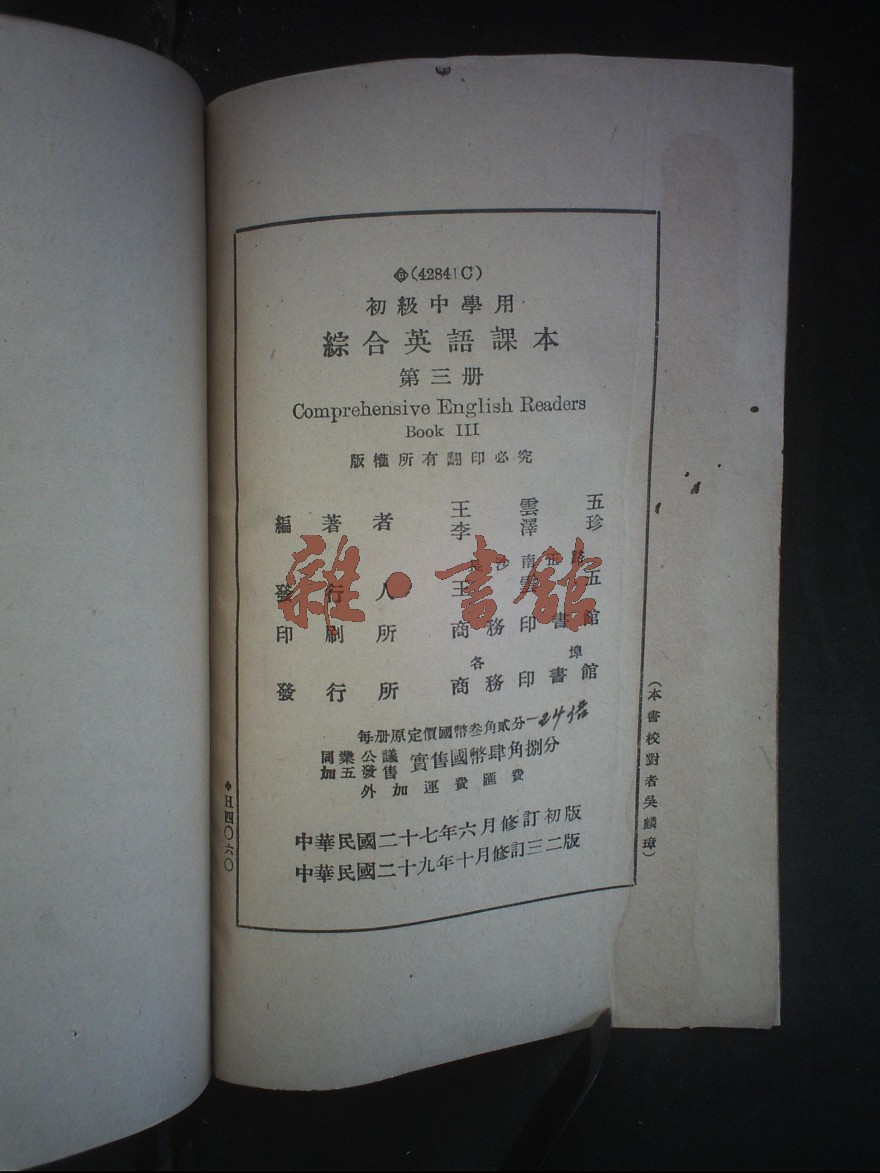 (42841C)
初級中學用
綜合英語課本
第三册
Comprehensive English Readers
Book III
版權所有翻印必究
編著者 王雲五
李澤珍
長沙南正路
發行人 王雲五
印刷所 商務印書館
各埠
發行所 商務印書館
每册原定價國幣叁角貳分一24倍
同業公議
加五發售
實售國幣肆角捌分
外加運費匯費
中華民國二十七年六月修訂初版
中華民國二十九年十月修訂三二版
H四〇六〇
(本書校對者吳麟璋)
雜·書館